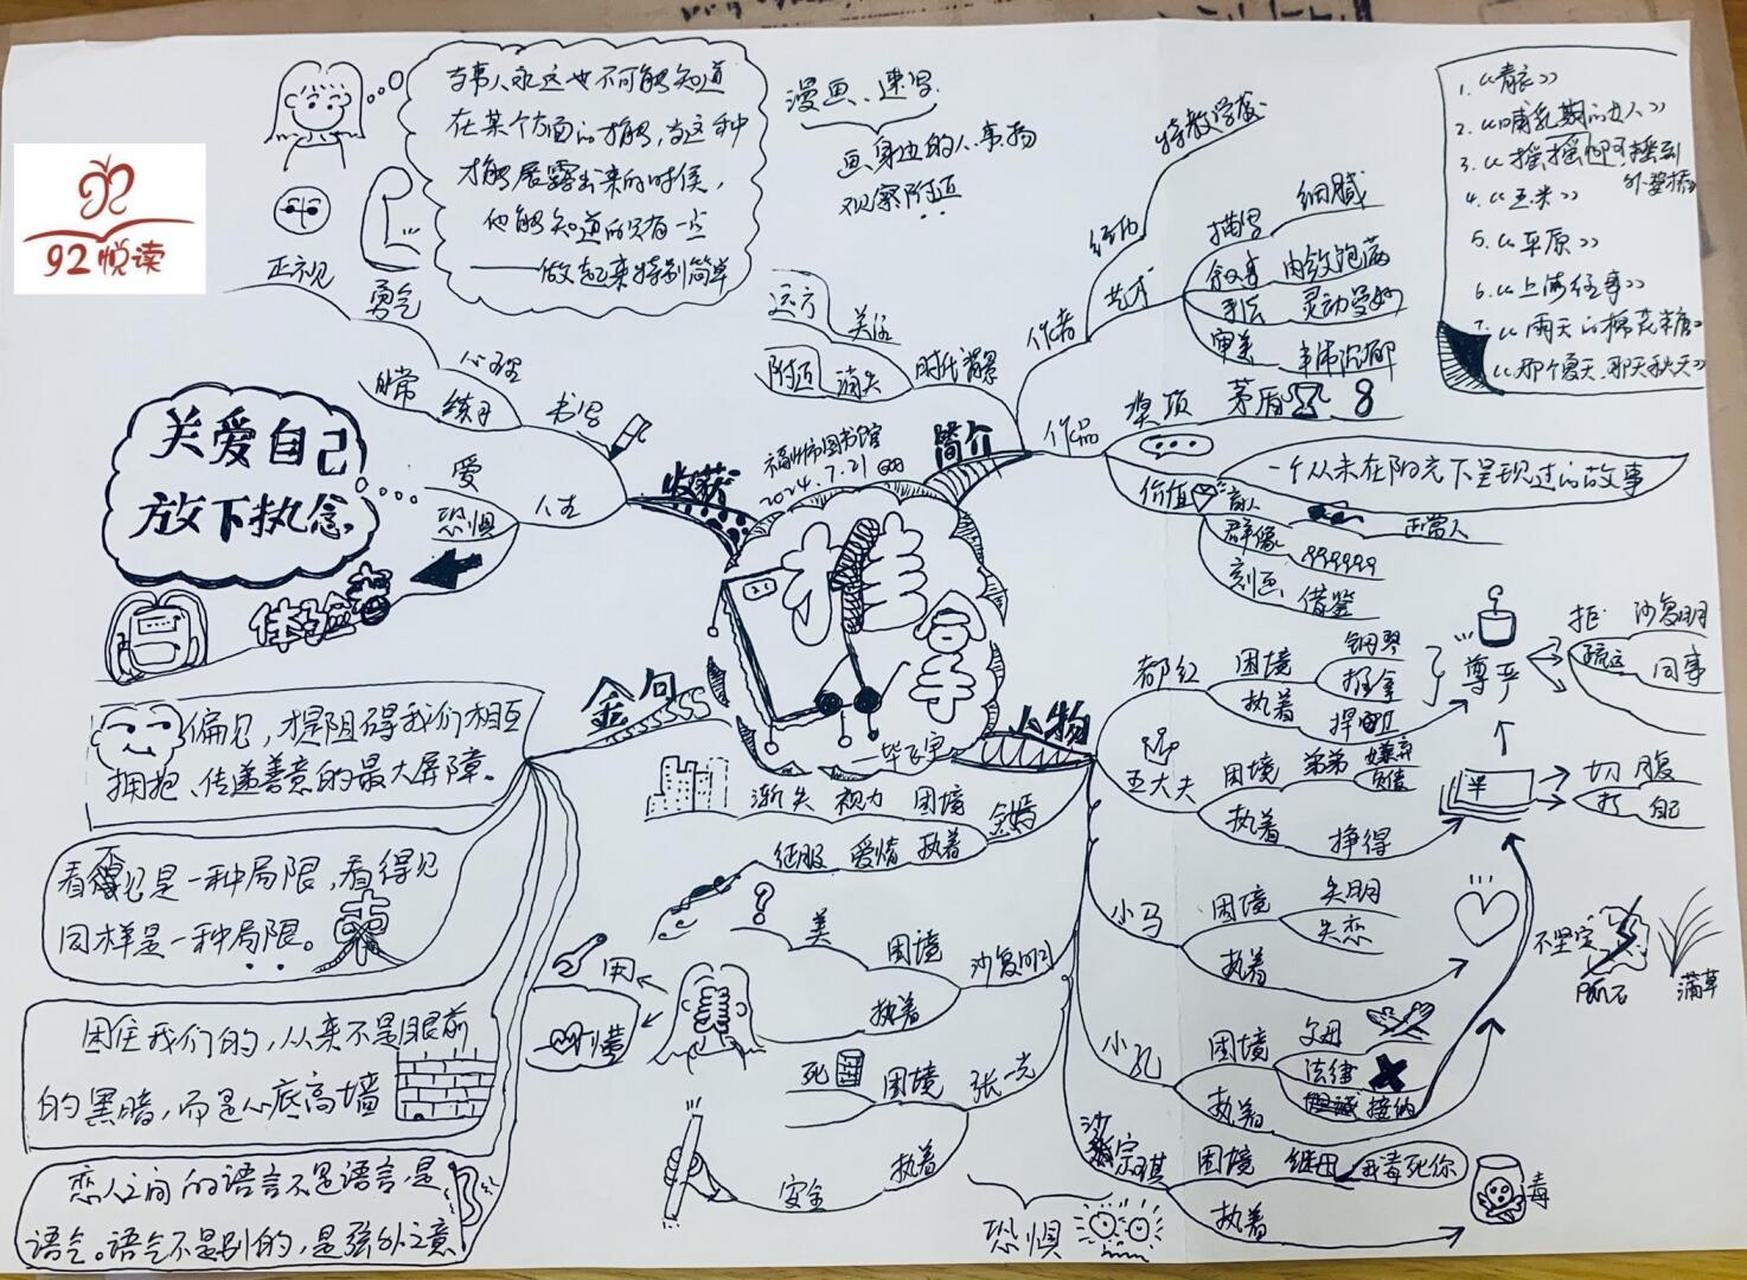 92悦读
正视
勇气
当事人永远也不可能知道
在某个方面的才能,当这种
才能展露出来的时候,
他能知道的只有一点
——做起来特别简单
漫画、速写
画身边的人、事、物
观察附近
特教学校
经历
艺术
作者
描写 细腻
叙事 内敛饱满
手法 灵动曼妙
审美
1.《青衣》
2.《哺乳期的女人》
3.《摇摇啊摇,摇到
外婆桥》
4.《玉米》
5.《平原》
6.《上海往事》
7.《雨天的棉花糖》
《那个夏天,那天秋天》
远方 关注
附近 消失
时代背景
简介
作品
奖项 茅盾 8
一个从未在阳光下呈现过的故事
价值
盲人 正常人
群像
刻画 借鉴
心理
日常 练习
书写
收获
爱
恐惧
人生
关爱自己
放下执念
体验
福州市图书馆
2024.7.21
推拿
合手
——毕飞宇
金句
偏见,才是阻碍我们相互
拥抱、传递善意的最大屏障。
看不见是一种局限,看得见
同样是一种局限。
困住我们的,从来不是眼前
的黑暗,而是心底高墙
恋人之间的语言不是语言,是
语气。语气不是别的,是弦外之意
人物
都红 困境 钢琴
推拿
执着 捍卫
尊严
拒 沙复明
疏远 同事
王大夫 困境 弟弟 嫌弃
负债
执着 挣得
切腹
打 自己
小马 困境 失明
失恋
执着
不坚定
磐石
蒲草
小孔 困境 父母
法律
坦诚 接纳
执着
沙宗琪 困境 继母 我毒死你
执着
毒
金嫣 困境 视力 渐失
执着 爱情 征服
沙复明 困境 美
执着
用
懂
张一光 困境 死
执着 安全
恐惧